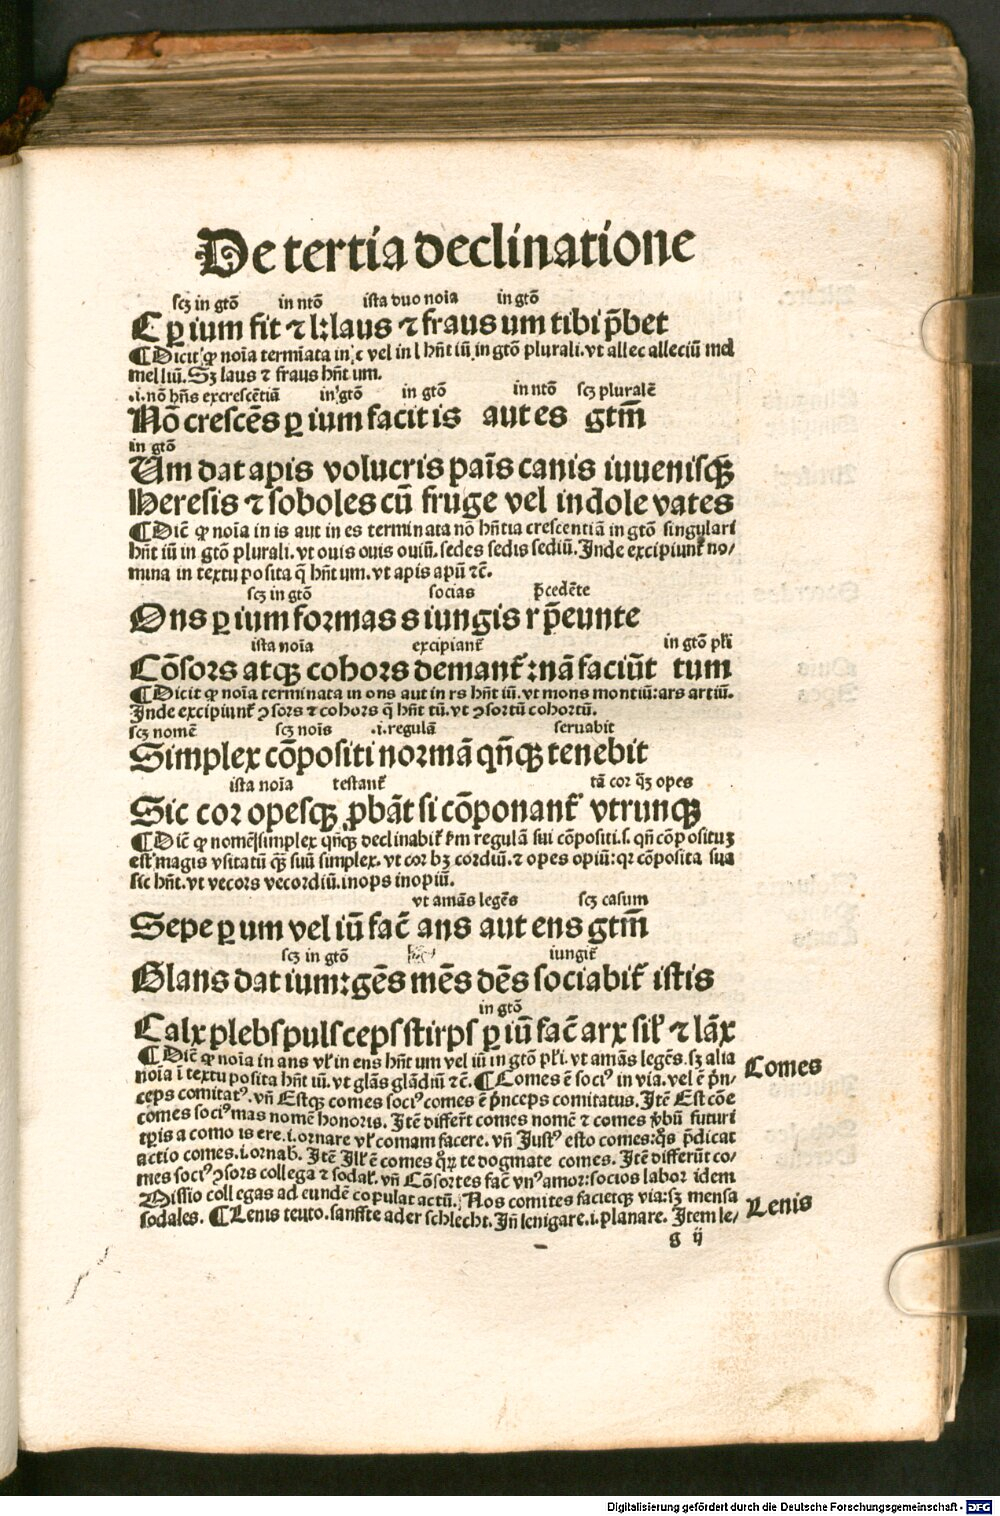 De tertia declinatione
scꝫ in gtō in ntō ista duo noīa in gtō
C ꝑ ium fit ⁊ l: laus ⁊ fraus um tibi p̄bet
¶ Dicit ꝙ noīa termīata in c vel in l hn̄t iū in gtō plurali. vt allec alleciū mel
mel liū. Sꝫ laus ⁊ fraus hn̄t um.
.i. nō hn̄s excrescētiā in gtō in gtō in ntō scꝫ pluralē
Nō crescēs ꝑ ium facit is aut es gtm̄
in gtō
Um dat apis volucris pāis canis iuuenisqꝫ
Heresis ⁊ soboles cū fruge vel indole vates
¶ Dic̄ ꝙ noīa in is aut in es terminata nō hn̄tia crescentiā in gtō singulari
hn̄t iū in gtō plurali. vt ouis ouis ouiū. sedes sedis sediū. Inde excipiunt᷑ no/
mina in textu posita q̄ hn̄t um. vt apis apū ⁊c̄.
scꝫ in gtō socias p̄cedēte
Ons ꝑ ium formas s iungis r p̄eunte
ista noīa excipiant᷑ in gtō pl̄i
Cōsors atqꝫ cohors demant᷑: nā faciūt tum
¶ Dicit ꝙ noīa terminata in ons aut in rs hn̄t iū. vt mons montiū: ars artiū.
Inde excipiunt᷑ ꝯsors ⁊ cohors q̄ hn̄t tū. vt ꝯsortū cohortū.
scꝫ nomē scꝫ noīs .i. regulā seruabit
Simplex cōpositi normā qn̄qꝫ tenebit
ista noīa testant᷑ tā cor q̄ꝫ opes
Sic cor opesqꝫ ꝓbāt si cōponant᷑ vtrunqꝫ
¶ Dic̄ ꝙ nomē simplex qn̄qꝫ declinabit᷑ ẜm regulā sui cōpositi. s. qn̄ cōpositūꝫ
est magis vsitatū q̄ꝫ suū simplex. vt cor hꝫ cordiū. ⁊ opes opiū: qꝛ cōposita sua
sic hn̄t. vt vecors vecordiū. inops inopiū.
vt amās legēs scꝫ casum
Sepe ꝑ um vel iū fac̄ ans aut ens gtm̄
scꝫ in gtō iungit᷑
Glans dat ium: gēs mēs dēs sociabit᷑ istis
in gtō
Calx plebs puls ceps stirps ꝑ iū fac̄ arx sil̄ ⁊ lāx
¶ Dic̄ ꝙ noīa in ans vl̄ in ens hn̄t um vel iū in gtō pl̄i. vt amās legēs. sꝫ alia
noīa ī textu posita hn̄t iū. vt glās glādiū ⁊c̄. ¶ Comes ē sociꝰ in via. vel ē p̄n/
ceps comitatꝰ. vn̄ Estqꝫ comes sociꝰ comes ē p̄nceps comitatus. Itē Est cōe
comes sociꝰ mas nomē honoris. Itē differt comes nomē ⁊ comes v̄bū futuri
tꝑis a como is ere. i. ornare vl̄ comam facere. vn̄ Justꝰ esto comes: q̄s p̄dicat
actio comes. i. ornab. Itē Ill̄ ē comes q̄ꝝ te dogmate comes. Itē differūt co/
mes sociꝰ ꝯsors collega ⁊ sodal̄. vn̄ Cōsortes fac̄ vnꝰ amor: socios labor idem
Missio collegas ad eundē copulat actū. Nos comites facietqꝫ via: sꝫ mensa
sodales. ¶ Lenis teuto. sanffte ader schlecht. Jn̄ lenigare. i. planare. Item le/
g ij
Comes
Lenis
Digitalisierung gefördert durch die Deutsche Forschungsgemeinschaft - DFG